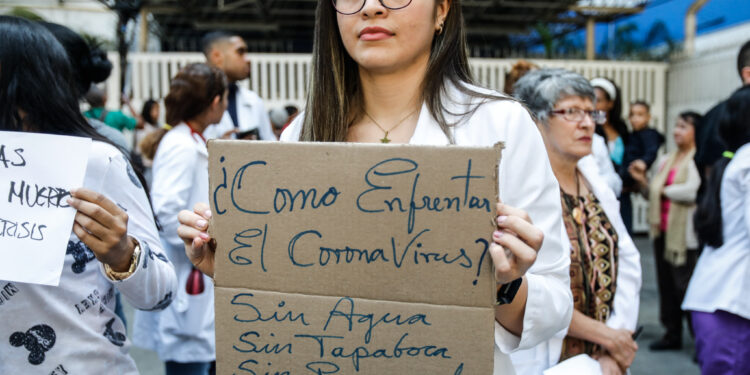 AS
MUERE
CRISIS
¿Como Enfrentar
El CoronaVirus?
Sin Agua
Sin Tapaboca
Sin